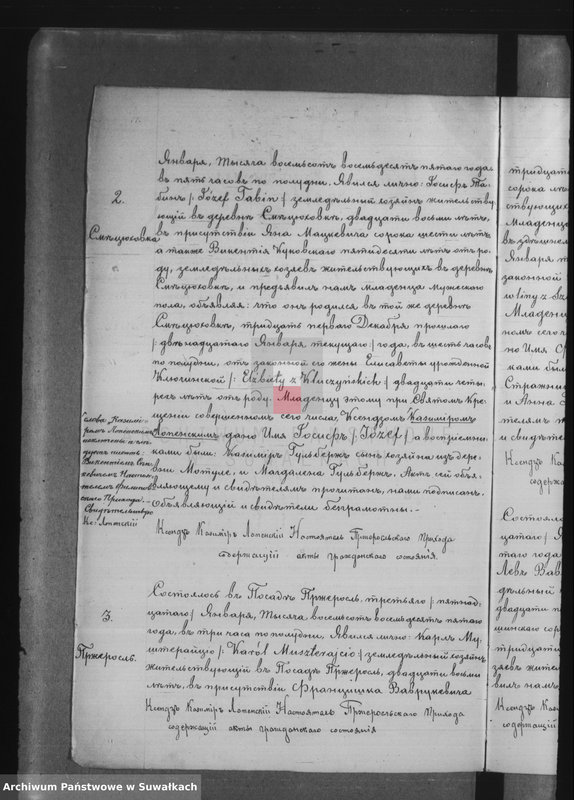 Января, тысяча восемьсотъ восемьдесятъ пятаго года,
въ пять часовъ по полудни. Явился лично: Іосифъ Та-
бинъ /: Józef Tabin :/ земледѣльный хозяинъ жительству-
ющій въ деревнѣ Смѣцюховкѣ, двадцати восьми лѣтъ,
въ присутствіи Яна Мацкевича сорока шести лѣтъ,
а также Викентія Куковскаго пятидесяти лѣтъ отъ ро-
ду, земледѣльныхъ хозяевъ жительствующихъ въ деревнѣ
Смѣцюховкѣ, и предъявилъ намъ младенца мужескаго
пола, объявляя: что онъ родился въ той же деревнѣ
Смѣцюховкѣ, тридцать перваго Декабря прошлаго
/: двѣнадцатаго Января текущаго :/ года, въ шесть часовъ
по полудни, отъ законной его жены Елисаветы урожденной
Ключинской /: Elżbiety z Kluczyńskich :/ двадцати четы-
рехъ лѣтъ отъ роду. Младенцу этому при Святомъ Кре-
щеніи совершенномъ сего числа, Ксендзомъ Казимиромъ
Лопенскимъ дано Имя Іосифъ /: Józef :/ а воспріемни-
ками были: Казимиръ Гульбержъ сынъ хозяина изъ дере-
вни Мотуле, и Магдалена Гульбержъ. Актъ сей объя-
вляющему и свидѣтелямъ прочитанъ, нами подписанъ.
Объявляющій и свидѣтели безграмотны. –
Ксендзъ Казиміръ Лопенскій Настоятель Пржеросльскаго Прихода
содержащій акты гражданскаго состоянія.
2.
Смѣцюховка
Слова „Казими-
ромъ Лопенскимъ"
Викентіемъ
Настоя-
телемъ Филипов-
скаго Прихода. –
Свидѣтельствую
Кс: Лопенскій
3.
Пржеросль.
Состоялось въ Посадѣ Пржеросль, третьяго /: пятнад-
цатаго :/ Января, тысяча восемьсотъ восемьдесятъ пятаго
года, въ три часа по полудни. Явился лично Карлъ Му-
штерайцо /: Karól Muszterajco :/ земледѣльный хозяинъ
жительствующій въ Посадѣ Пржеросль, двадцати восьми
лѣтъ, въ присутствіи Францишка Ваврукевича
Ксендзъ Казиміръ Лопенскій Настоятель Пржеросльскаго Прихода
содержащій акты гражданскаго состоянія
тридцати
сорока
ствующихъ
Младенца
Января
законной
Младени
намъ сего
но Имя
ками были
и Анна
телямъ
и свидѣт
Ксендзъ Каз
содержащ
Состояло
цатаго /:
года
Левъ Вав
дѣльный
двадцати
тридцати
заевъ жите
вилъ намъ
Ксендзъ Каз
содержащій
Archiwum Państwowe w Suwałkach